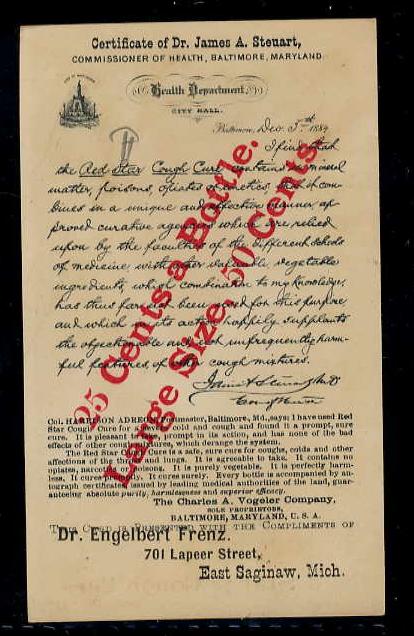 Certificate of Dr. James A. Steuart,
COMMISSIONER OF HEALTH, BALTIMORE, MARYLAND
Health Department,
CITY HALL.
Baltimore, Dec. 3rd 1884
I find that
the Red Star Cough Cure contains no mineral
matter, poisons, opiates or emetics, that it com-
bines in a unique and effective manner ap-
proved curative agencies which are relied
upon by the faculties of the different schools
of medicine, with other valuable vegetable
ingredients, which combination to my knowledge,
has thus far not been used for this purpose
and which in its action happily supplants
the objectionable and not unfrequently harm-
ful features of other cough mixtures.
James A Steuart MD
25 Cents a Bottle.
Large Size, 50 Cents.
Col. HARRISON ADREON, Postmaster, Baltimore, Md., says; I have used Red
Star Cough Cure for a cold and cough and found it a prompt, sure
cure. It is pleasant, prompt in its action, and has none of the bad
effects of other cough mixtures, which derange the system.
The Red Star Cough Cure is a safe, sure cure for coughs, colds and other
affections of the throat and lungs. It is agreeable to take. It contains no
opiates, narcotics or poisons. It is purely vegetable. It is perfectly harm-
less. It cures promptly. It cures surely. Every bottle is accompanied by an-
tograph certificates issued by leading medical authorities of the land, guar-
anteeing absolute purity, harmlessness and superior efficacy.
The Charles A. Vogeler Company,
SOLE PROPRIETORS,
BALTIMORE, MARYLAND, U. S. A.
THIS CARD IS PRESENTED WITH THE COMPLIMENTS OF
Dr. Engelbert Frenz.
701 Lapeer Street,
East Saginaw, Mich.